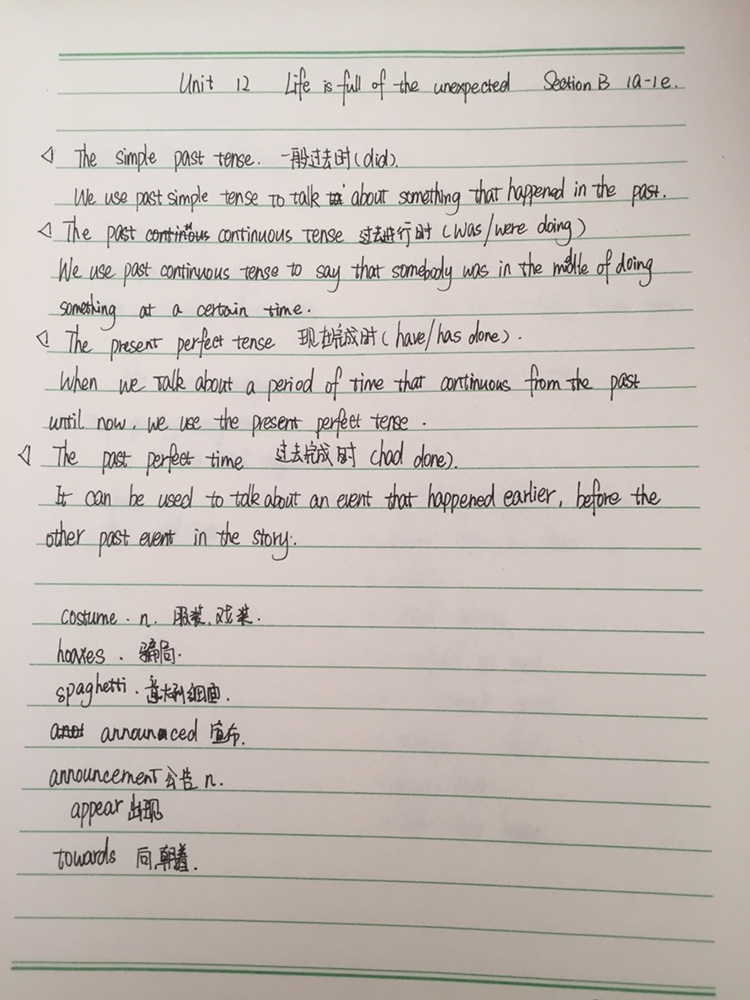 Unit 12 Life is full of the unexpected Section B 1a-1e.
The simple past tense. 一般过去时(did).
We use past simple tense to talk about something that happened in the past.
The past continuous continuous tense 过去进行时(was/were doing)
We use past continuous tense to say that somebody was in the middle of doing
something at a certain time.
The present perfect tense 现在完成时(have/has done).
When we talk about a period of time that continuous from the past
until now, we use the present perfect tense.
The past perfect time 过去完成时(had done).
It can be used to talk about an event that happened earlier, before the
other past event in the story.
costume. n. 服装,戏装.
hoaxes. 骗局.
spaghetti. 意大利细面.
announced 宣布.
announcement 公告 n.
appear 出现
towards 向,朝着.